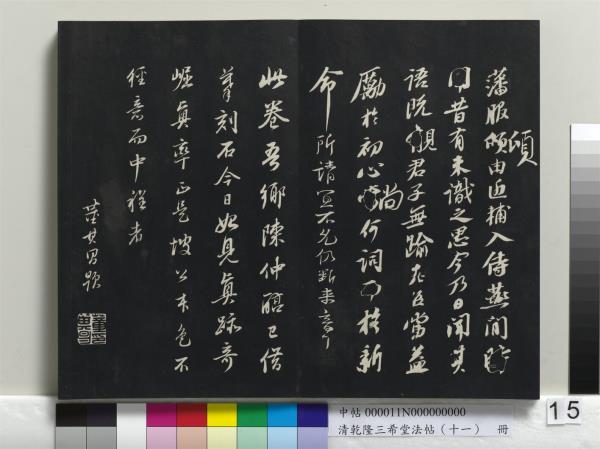 藩服頃由近輔入侍燕間
昔有未識之思今乃日聞其
語既覩君子無踰老臣當益
勵於初心尚何詞於新
命所請宜不允仍斷來章
此卷吾鄉陳仲醇已借
摹刻石今日始見真跡奇
崛真率正是坡公本色不
經意而中程者
董其昌題
中帖 000011N000000000
清乾隆三希堂法帖（十一） 冊
15